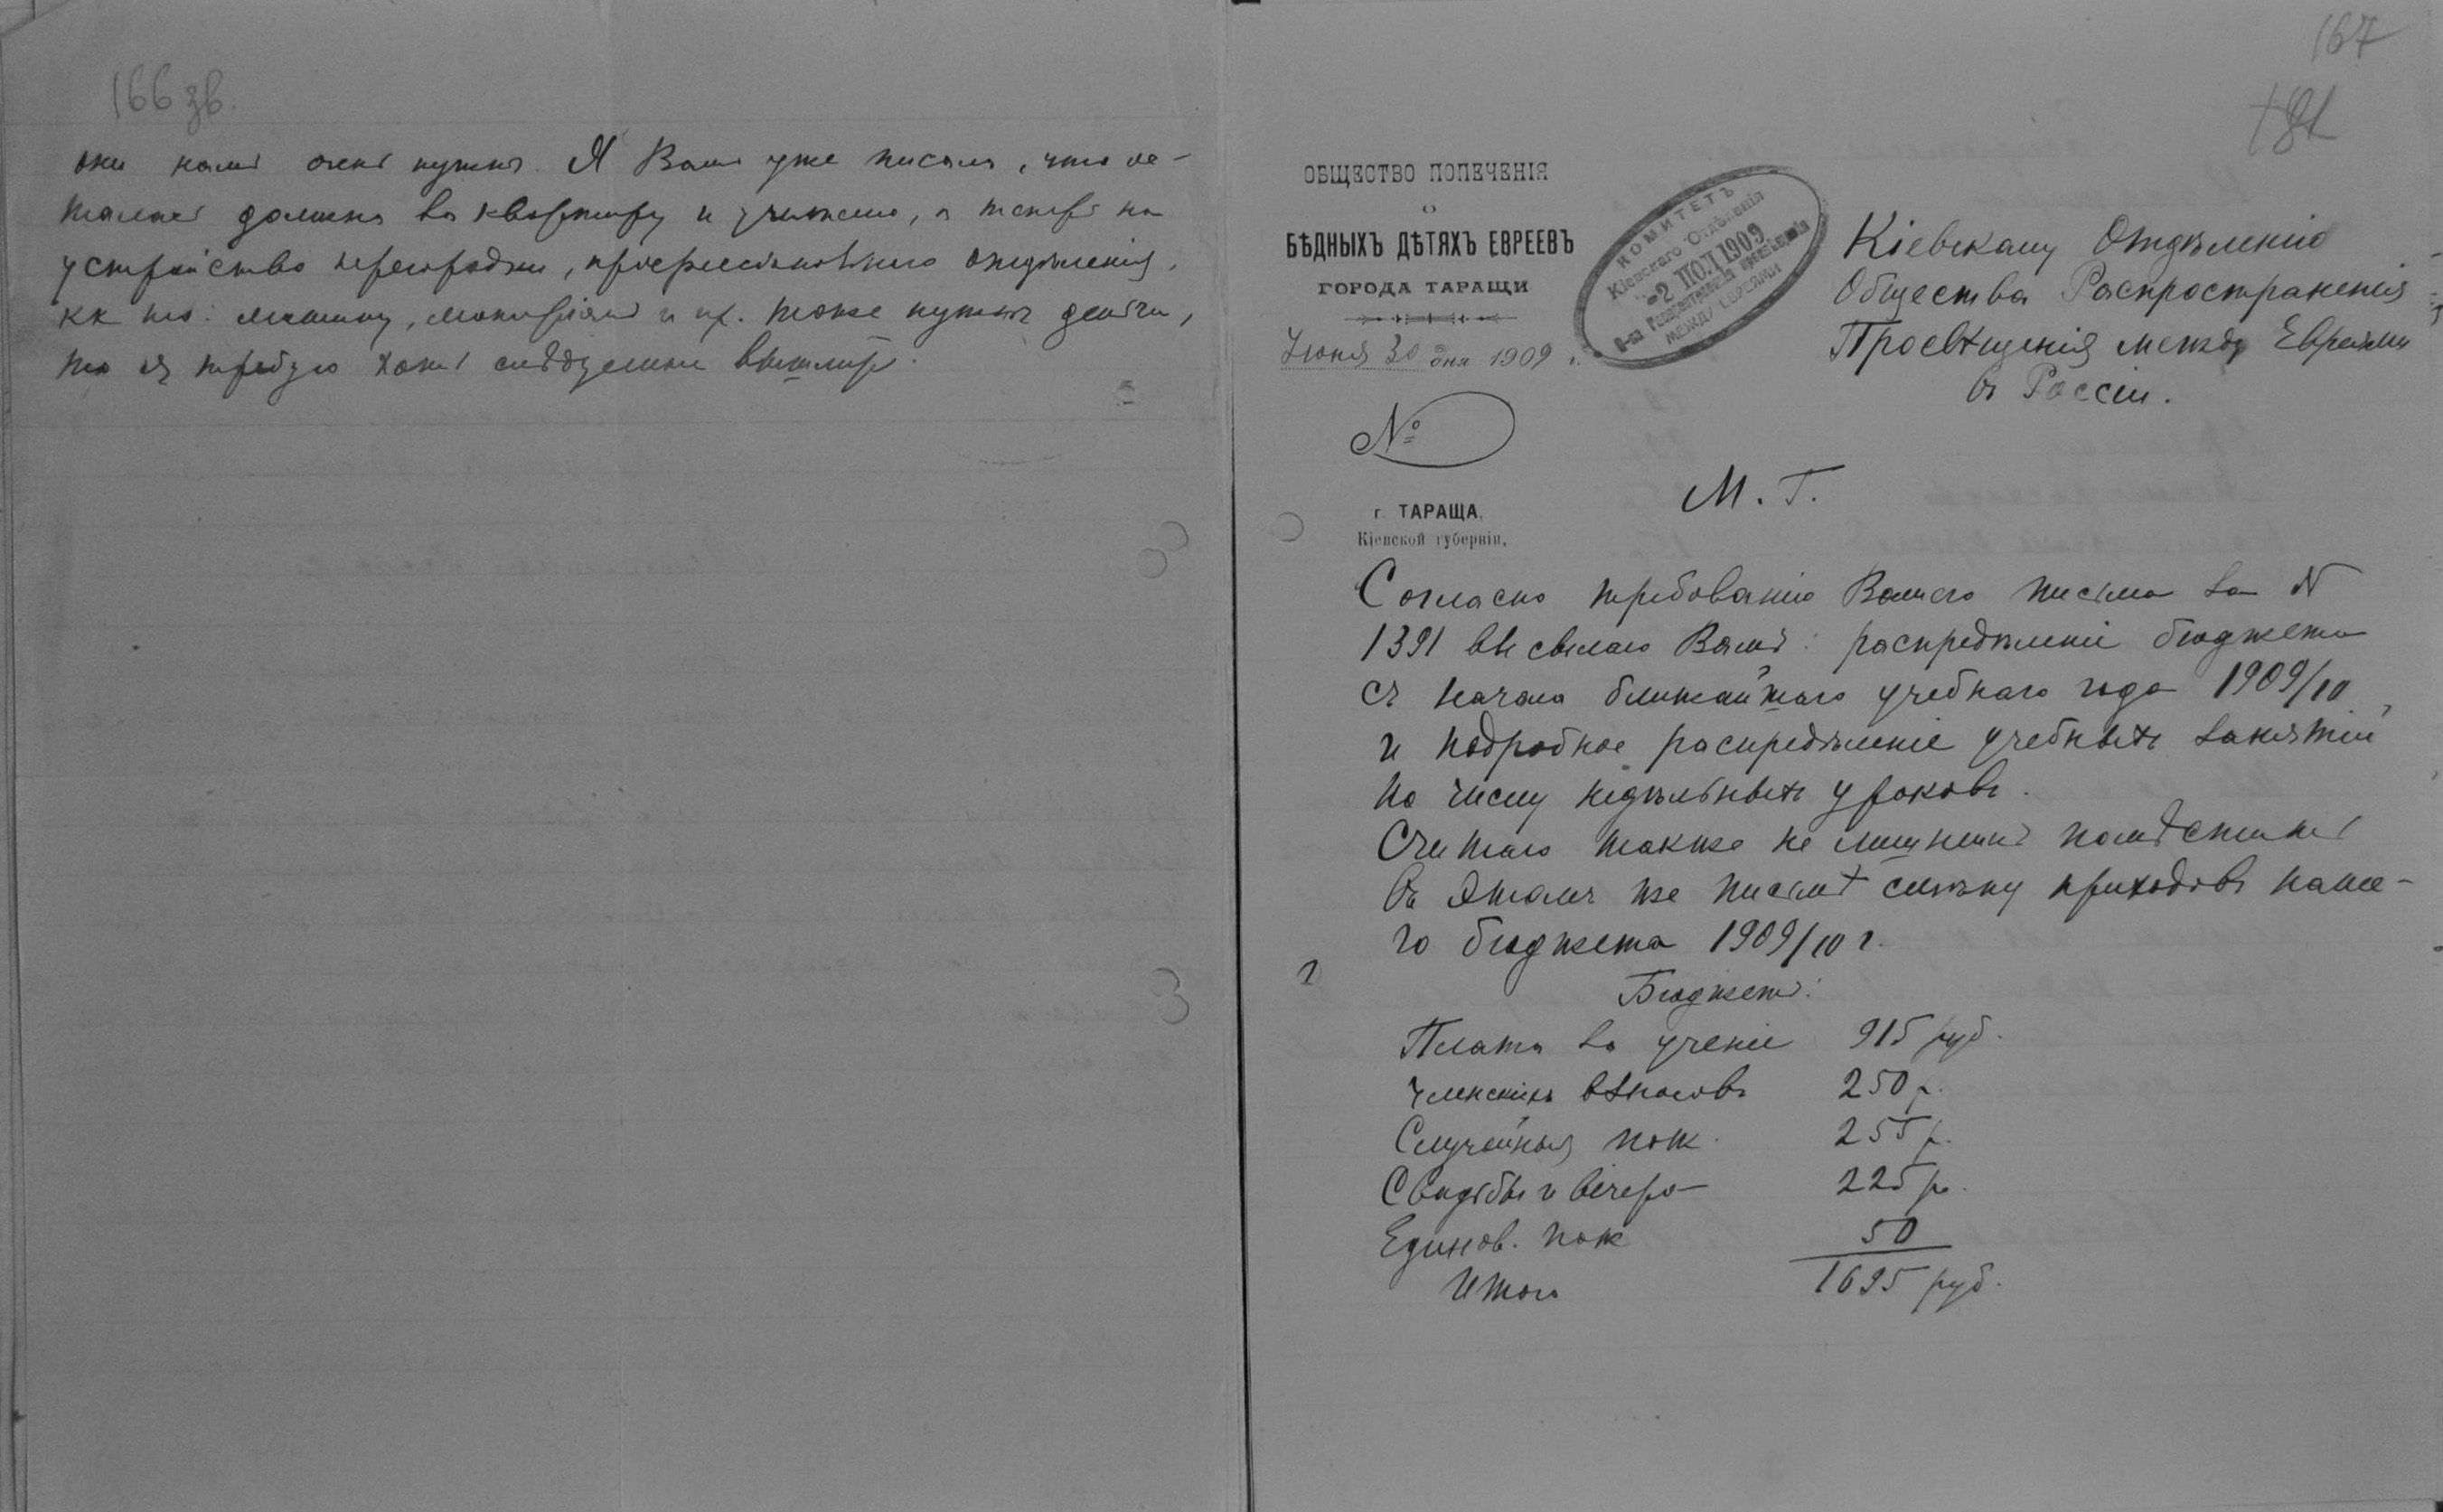 166 зв.
они намъ очень нужны. Я Вамъ уже писалъ, что ос-
талась должна за квартиру и учителю, а теперь на
устройство перегородки, профессіональнаго отдѣленія,
кк то: машину, матеріалъ и пр. тоже нужны деньги,
то я требую хоть слѣдуемыя
167
181
ОБЩЕСТВО ПОПЕЧЕНІЯ
О
БѢДНЫХЪ ДѢТЯХЪ ЕВРЕЕВЪ
ГОРОДА ТАРАЩИ
Іюня 30 дня 1909 г.
№
г. ТАРАЩА,
Кіевской губерніи.
КОМИТЕТЪ
Кіевскаго Отдѣленія
-2 ІЮЛ 1909
О-ва Распространенія просвѣщенія
МЕЖДУ ЕВРЕЯМИ
Кіевскому Отдѣленію
Общества Распространенія
Просвѣщенія между Евреями
въ Россіи.
М. Г.
Согласно требованію Вашего письма за N
1391 высылаю Вамъ: распредѣленіе бюджета
съ начала ближайшаго учебнаго года 1909/10,
и подробное распредѣленіе учебныхъ занятій
по числу недѣльныхъ уроковъ.
Считаю также не лишнимъ помѣстить
въ этомъ же письмѣ смѣту приходовъ наше-
го бюджета 1909/10 г.
Бюджетъ:
Плата за ученіе 915 руб.
Членскихъ взносовъ 250 р.
Случайныя пож. 255 р.
Свадьбы и вечера 225 р.
Единов. пож 50
Итого 1695 руб.